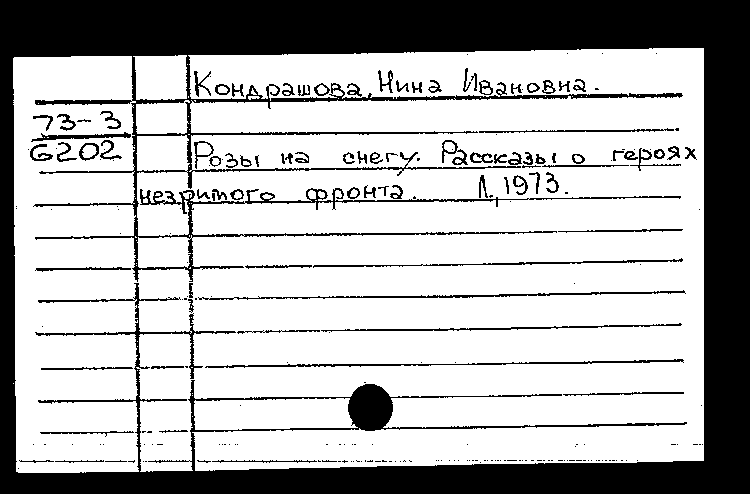 Кондрашова, Нина Ивановна.
73-3
6202
Розы на снегу. Рассказы о героях
незримого фронта. Л., 1973.